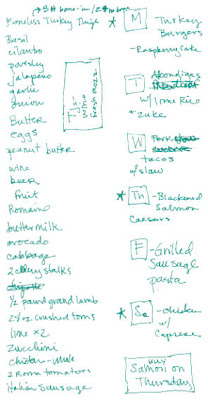 → 5# bone-in / 2#
Boneless Turkey Thigh
Basil
cilantro
parsley
jalapeño
garlic
onion
Butter
eggs
peanut butter
wine
beer
fruit
Romaine
buttermilk
avocado
cabbage
2 celery stalks
1/2 pound ground lamb
2 crushed toms
lime x2
zucchini
chicken - whole
2 Roma tomatoes
Italian Sausage
TJs:
wine
fresh mozz
* M - Turkey
Burgers
- Raspberry Cake
T
w/ lime Rice
+ zuke
W - Pork
tacos
w/ slaw
* Th - Blackened
Salmon
Caesars
F - Grilled
Sausage
pasta
* Sa - chicken
w/
Caprese
BUY
Salmon on
Thursday